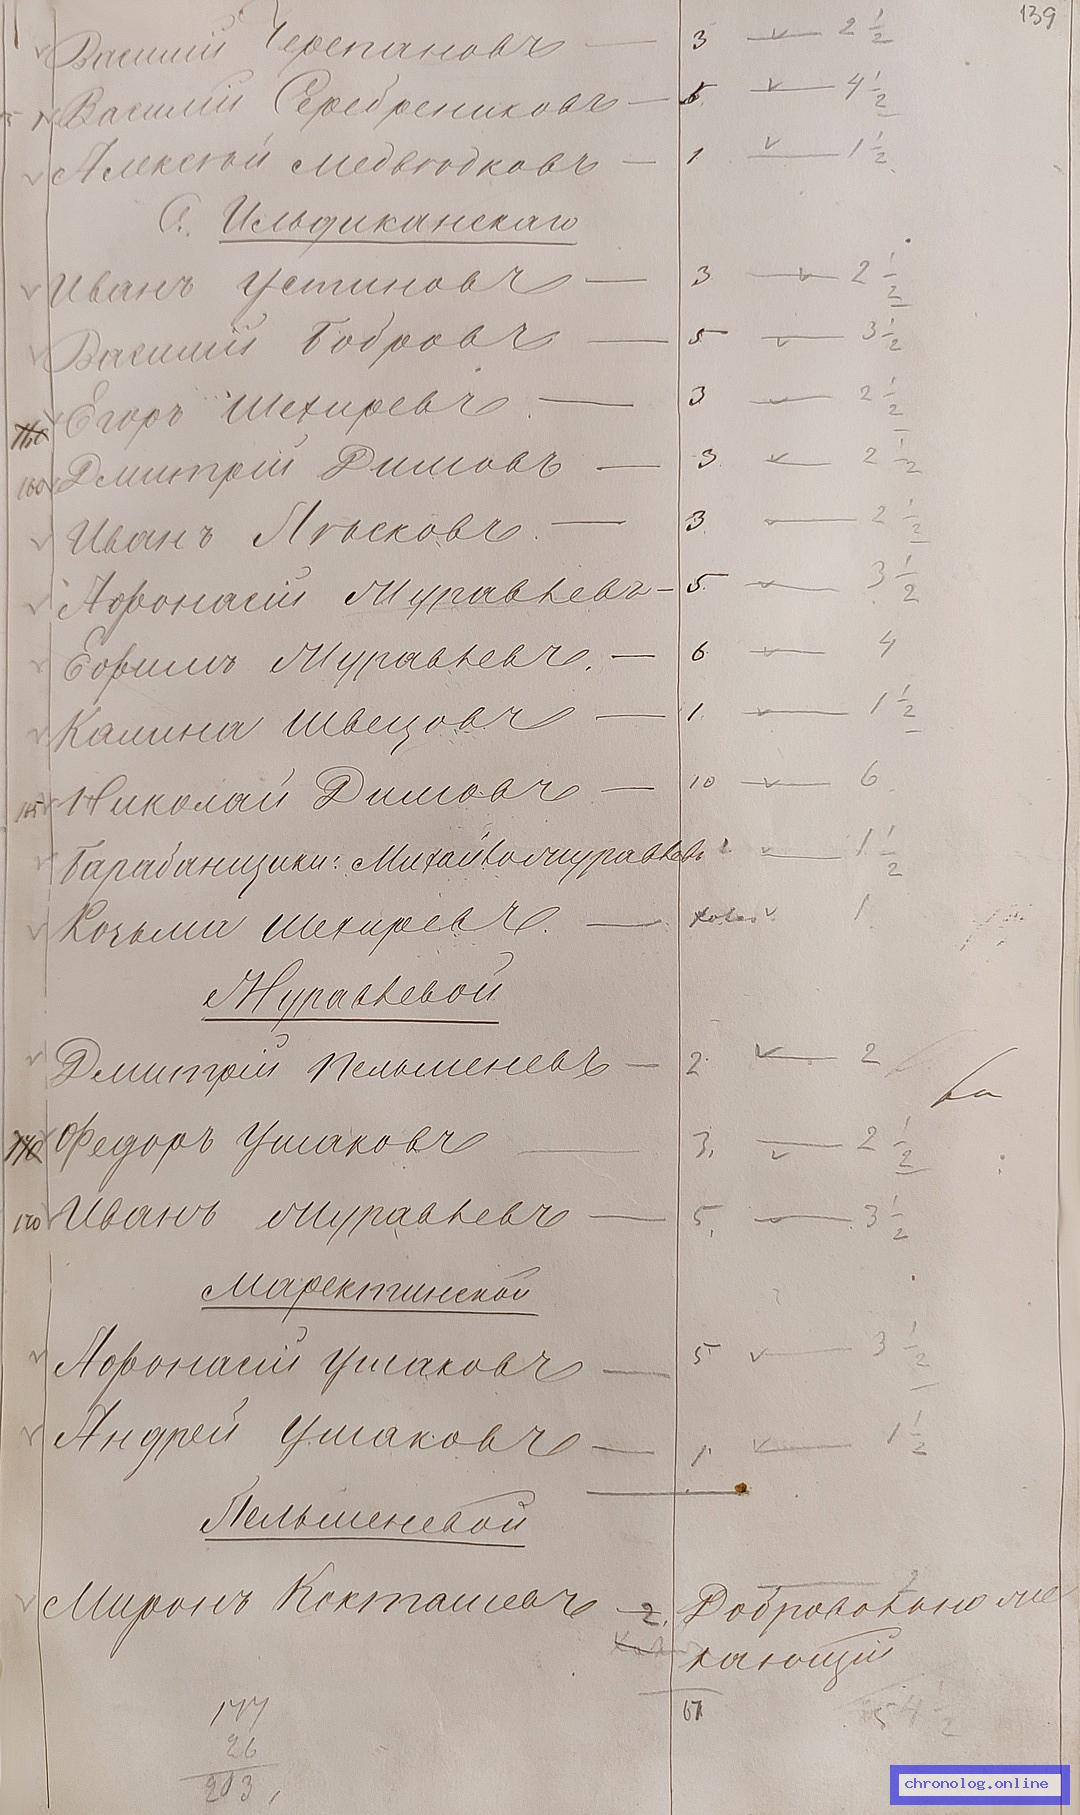 139
Василий Черепановъ — 3 2 1/2
Василій Серебрениковъ — 4 1/2
Алексѣй Медвѣдковъ — 1 1 1/2
С. Ильдиканскаго
Иванъ Устиновъ — 3 2 1/2
Василій Бобровъ — 5 3 1/2
Егоръ Шехиревъ — 3 2 1/2
160 Дмитрій Димовъ — 3 2 1/2
Иванъ Пѣсковъ — 3 2 1/2
Афонасій Муравьевъ — 5 3 1/2
Ефимъ Муравьевъ — 6 4
Калина Швецовъ — 1 1 1/2
165 Николай Димовъ — 10 6
Барабанщики: Михайло Муравьевъ 2 1 1/2
Козьма Шехиревъ — 1
Муравьевой
Дмитрій Пельменевъ — 2 2
Федоръ Ушаковъ — 3 2 1/2
170 Иванъ Муравьевъ — 5 3 1/2
Маректинской
Афонасій Ушаковъ — 5 3 1/2
Андрей Ушаковъ — 1 1 1/2
Пельменевой
Миронъ Кокташевъ — 2. Добровольно же
лающій
61 54 1/2
177
26
203
chronolog.online